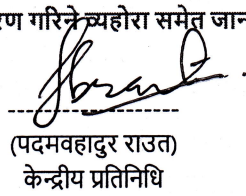 रण गरिने व्यहोरा समेत जान
(पदमवहादुर राउत)
केन्द्रीय प्रतिनिधि